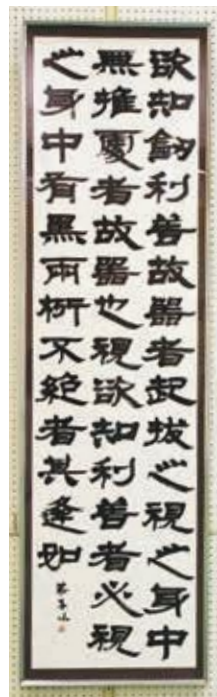 欲知劍利善故器者起拔之視之身中
無推處者故器也視欲知利善者必視
之身中有黑兩桁不絕者其逢如